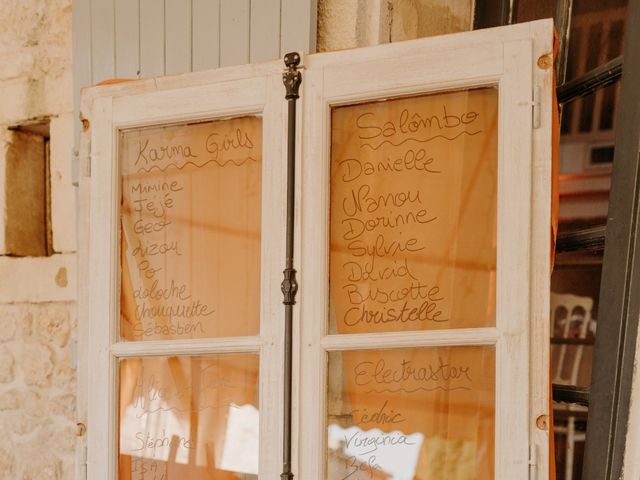 Karma Girls
Mimine
Jeje
Geo
Lizou
Po
Laloche
Chouquette
Sébastien
Salômbo
Danielle
Nanou
Dorinne
Sylvie
David
Biscotte
Christelle
Stéphane
ISA
Electrastar
Cédric
Virginca